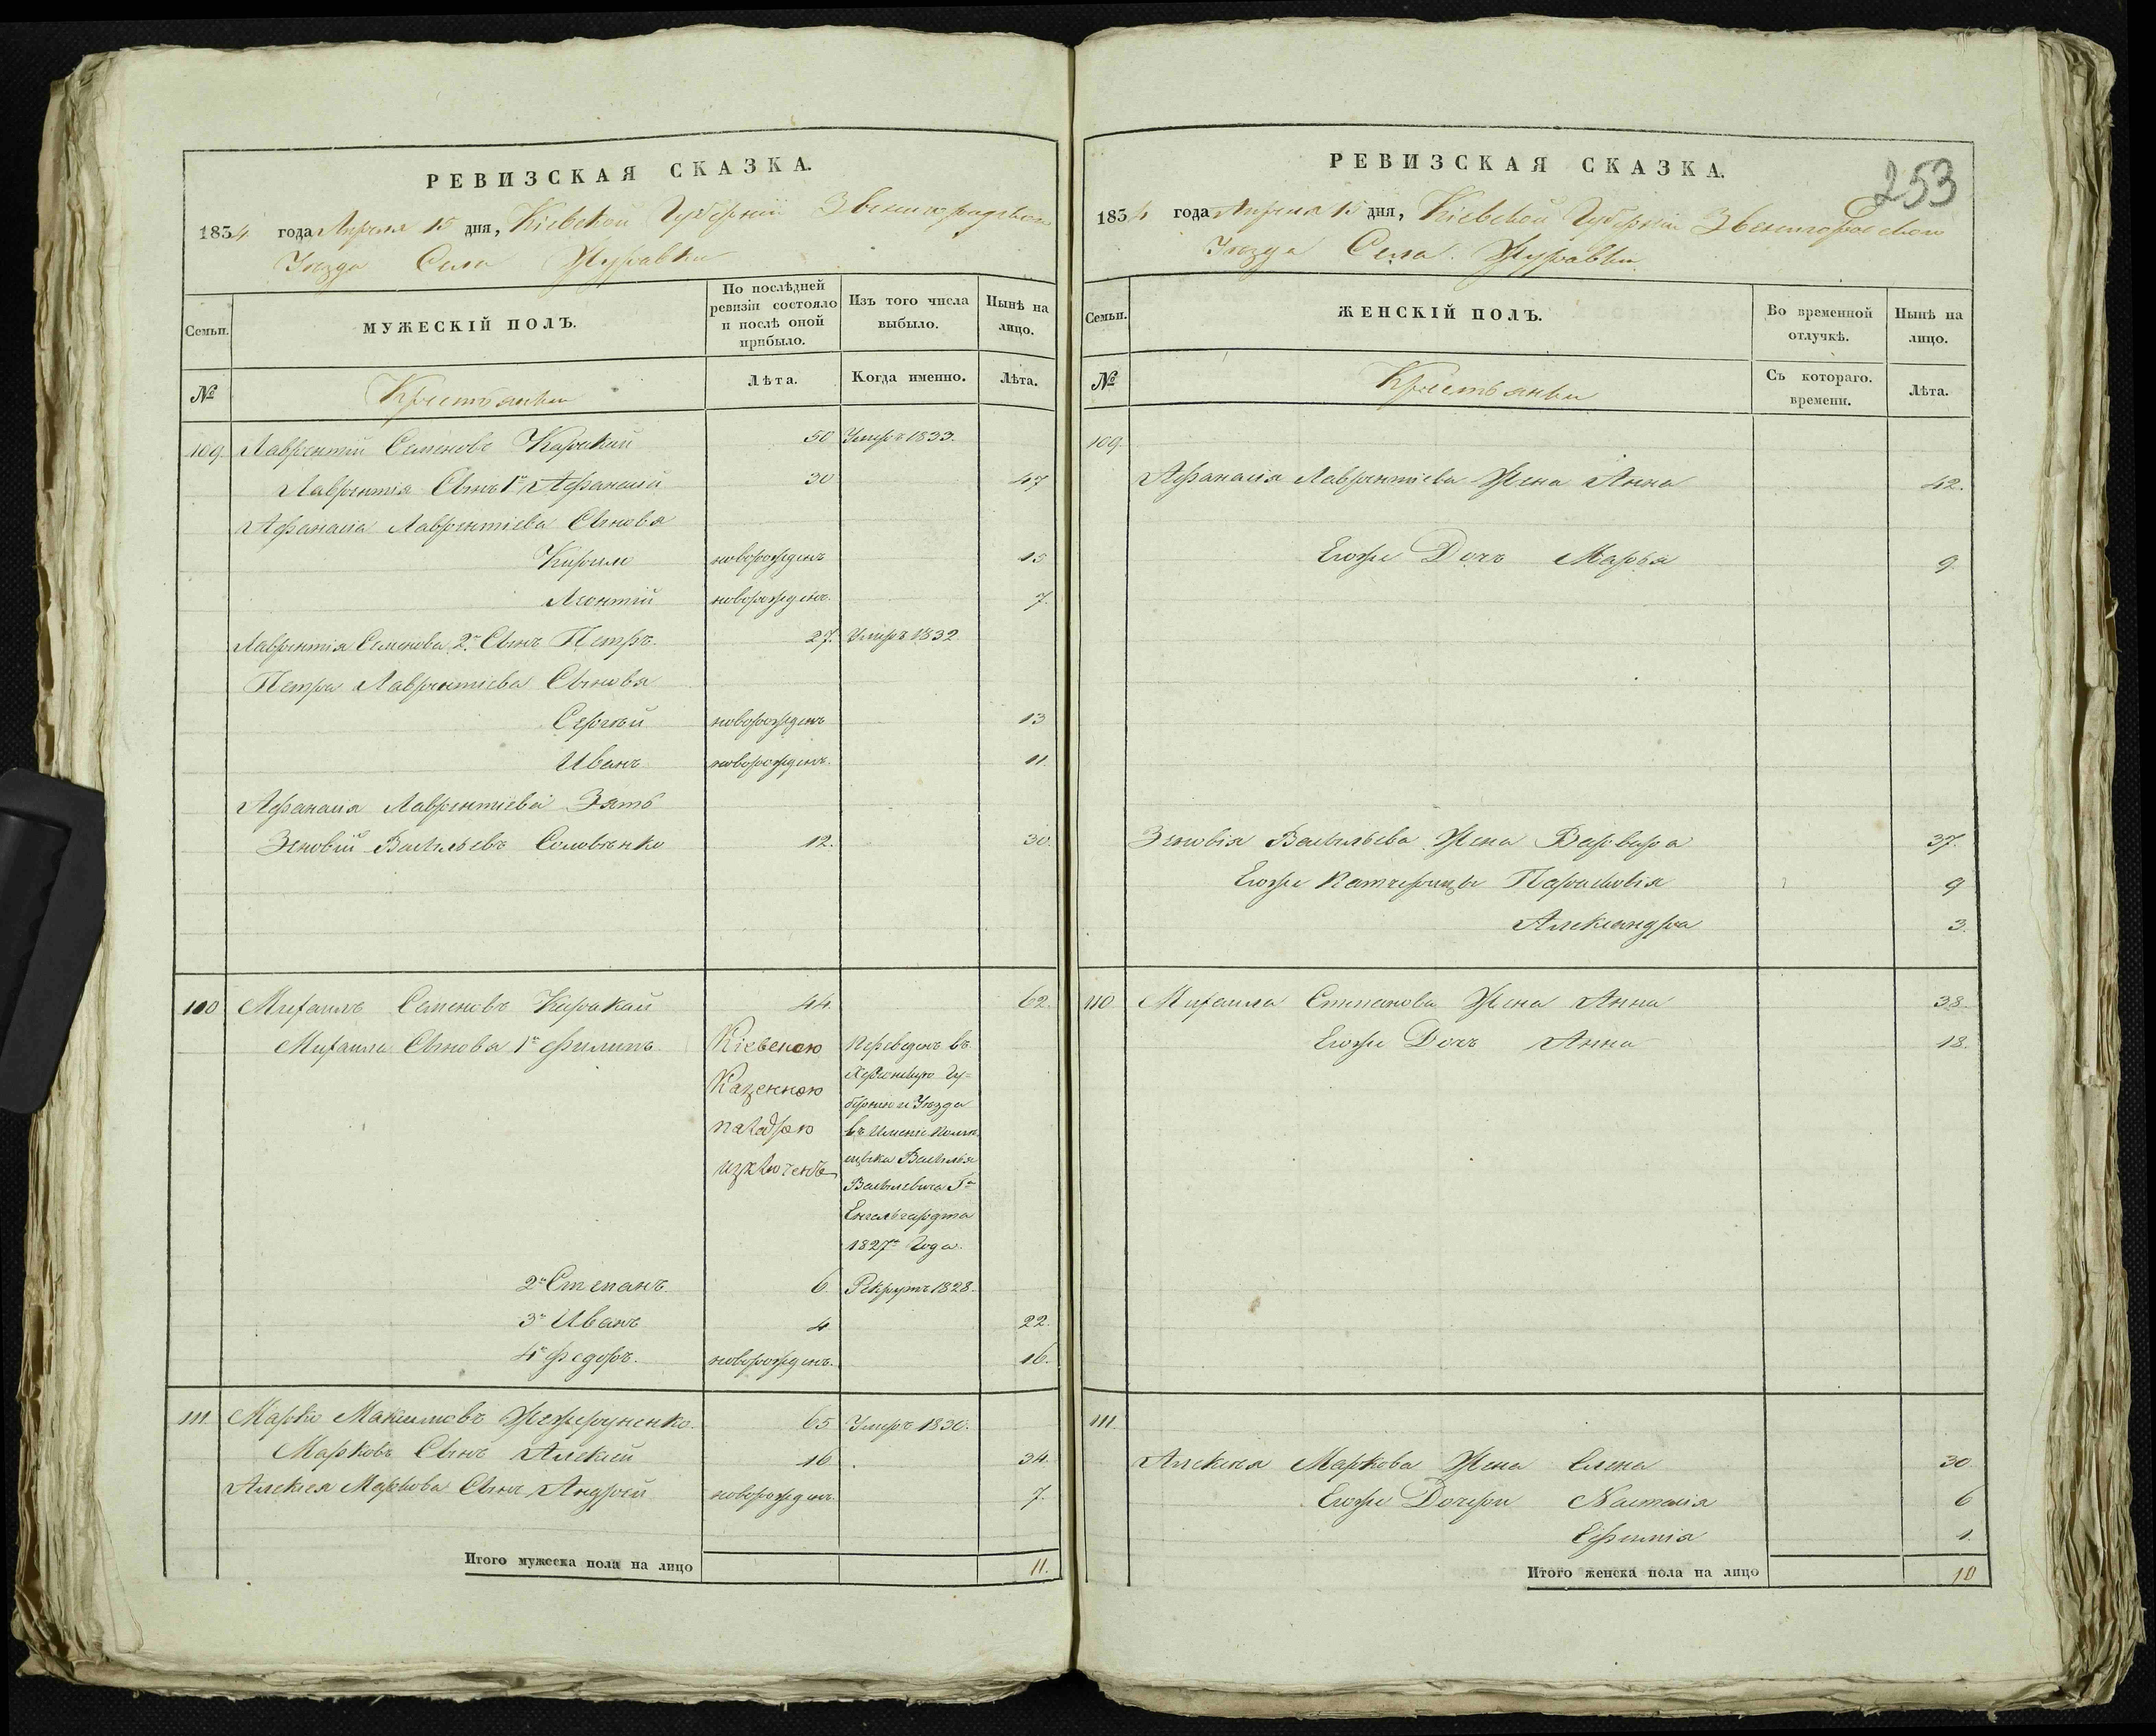 РЕВИЗСКАЯ СКАЗКА.
1834 года Апреля 15 дня, Кіевской Губерніи Звенигородскаго
Уезда Села Журавки
Семьи.
МУЖЕСКІЙ ПОЛЪ.
По послѣдней ревизіи состояло и послѣ оной прибыло.
Изъ того числа выбыло.
Нынѣ на лицо.
№
Крестьянъи
Лѣта.
Когда именно.
Лѣта.
109. Лаврентій Семеновъ Каракай 50 Умеръ 1833.
Лаврентія Сынъ 1й Афанасій 30 47
Афанасія Лаврентіева Сыновя
Кирило новорожденъ 15
Леонтій новорожденъ. 7.
Лаврентія Семенова 2й Сынъ Петръ. 27. Умеръ 1832
Петра Лаврентіева Сыновя
Сергѣй новорожденъ 13
Иванъ новорожденъ. 11.
Афанасія Лаврентіева Зять
Зѣновій Васильевъ Соловѣнко 12. 30.
110 Михаилъ Семеновъ Каракай 44. 62.
Михаила Сынова 1й Филипъ
Кіевскою
Казенною
палатою
изключенъ
Переведенъ въ
Херсонскую Гу=
бернію и Уѣзда
въ Именіе Помѣ
щика Василія
Васильевича Гна
Енгельгардта
1827го Года.
2й Степанъ 6. Рекрутъ 1828.
3й Иванъ 4 22.
4й Федоръ. новорожденъ. 16.
111. Марко Максимовъ 65 Умеръ 1830.
Марковъ Сынъ Алексей 16. 34.
Алексея Маркова Сынъ Андрей новорожденъ. 7.
Итого мужеска пола на лицо 11.
253
РЕВИЗСКАЯ СКАЗКА.
1834 года Апреля 15 дня, Кіевской Губерніи Звенигородскаго
Уезда Села Журавки
Семьи.
ЖЕНСКІЙ ПОЛЪ.
Во временной отлучкѣ.
Нынѣ на лицо.
№
Крестьянъи
Съ котораго. времени.
Лѣта.
109.
Афанасія Лаврентіева Жена Анна 42.
Егоже Дочъ Марья 9
Зѣновія Васильева Жена Варвара 37.
Егоже Парасковія 9
Александра 3.
110. Михаила Степанова Жена Анна 38.
Егоже Дочъ Анна 18.
111.
Алексея Маркова Жена Елена 30
Егоже Дочери Настасія 6
Ефимія 1.
Итого женска пола на лицо 10